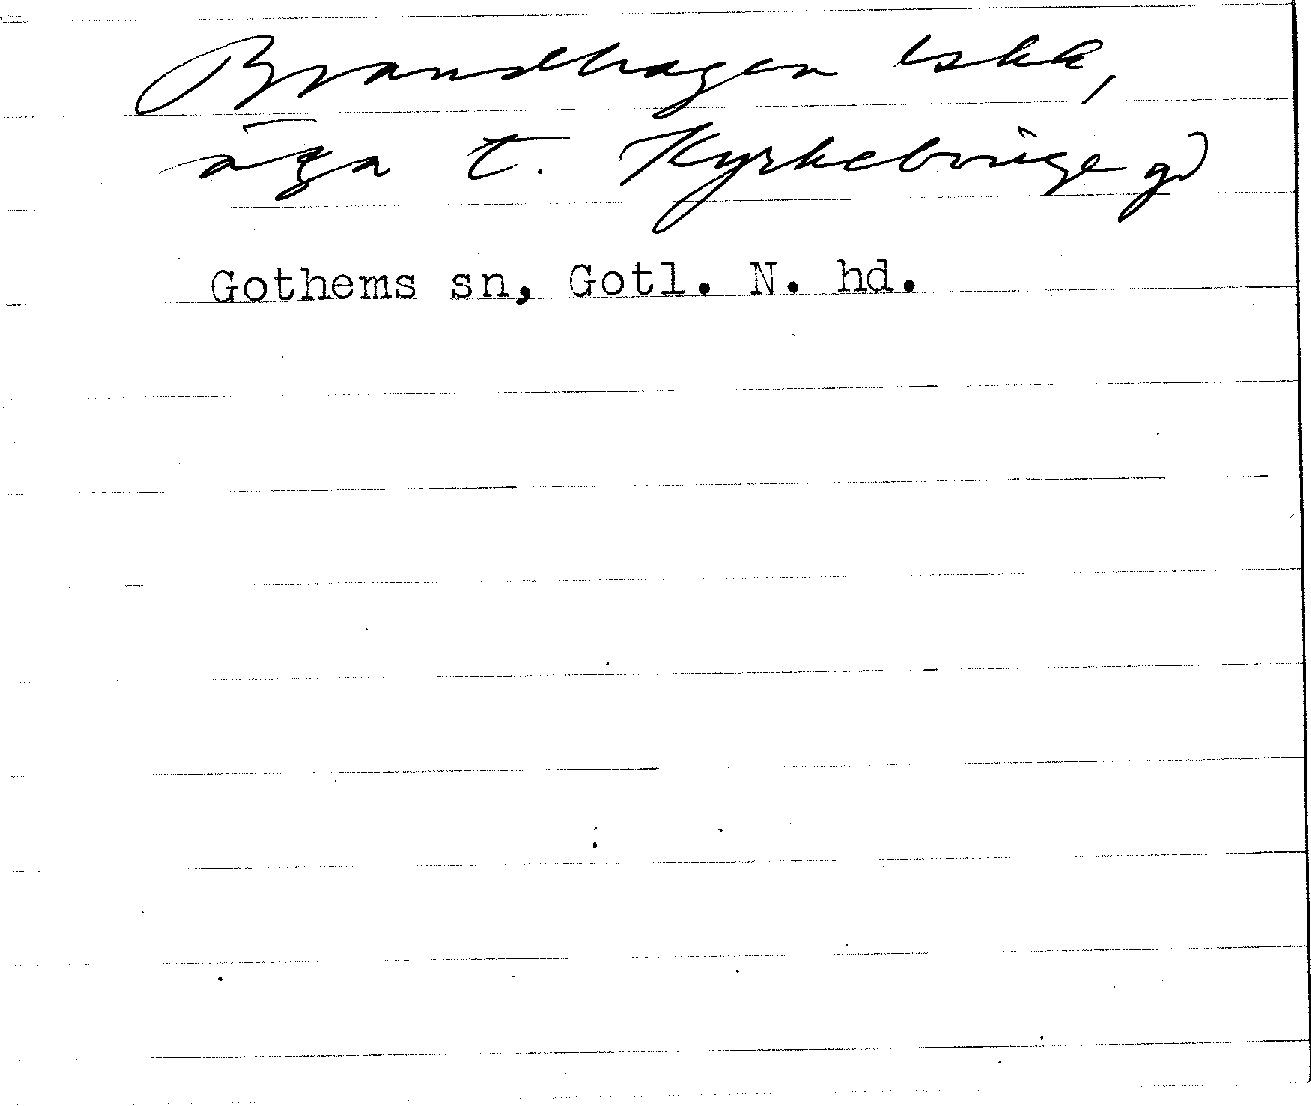 Brandhagen lskk,
äga t. Kyrkebinge gd
Gothems sn, Gotl. N. hd.